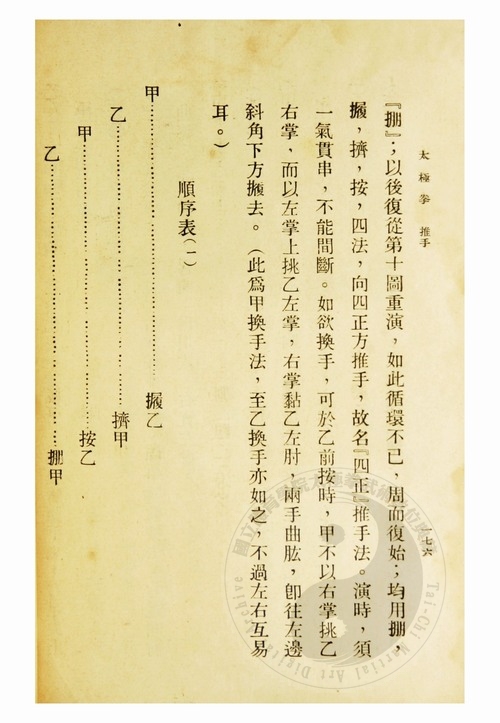 太極拳 推手
一七六
『掤』；以後復從第十圖重演，如此循環不已，周而復始；均用掤，
擴，擠，按，四法，向四正方推手，故名『四正』推手法。演時，須
一氣貫串，不能間斷。如欲換手，可於乙前按時，甲不以右掌挑乙
右掌，而以左掌上挑乙左掌，右掌黏乙左肘，兩手曲肱，卽往左邊
斜角下方擴去。（此爲甲換手法，至乙換手亦如之，不過左右互易
耳。）
順序表（一）
甲……………………擴乙
乙……………………擠甲
甲……………………按乙
乙……………………掤甲
國立
Tai-Chi Martial Art Digital Archive